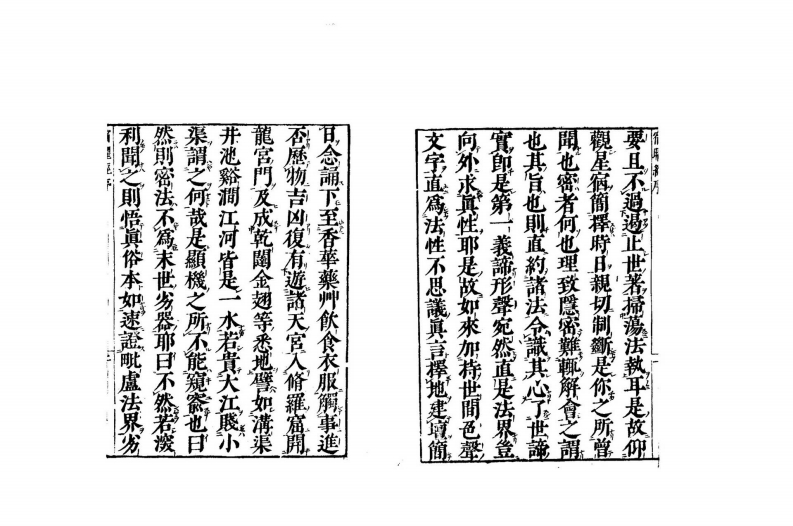 要且不過遏止世著掃蕩法執耳是故仰
觀星宿簡擇時日親切制斷是你之所曾
聞也密者何也理致隱密難輙解會之謂
也其旨也則直約諸法令識其心了世諦
實即是第一義諦形聲宛然直是法界豈
向外求眞性耶是故如來加持世間色聲
文字直爲法性不思議眞言擇地建壇簡
日念誦下至香華藥艸飮食衣服觸事進
否歷物吉凶復有遊諸天宮入脩羅窟開
龍宮門及成乾闥金翅等悉地譬如溝渠
井池谿澗江河皆是一水若貴大江賤小
渠謂之何哉是顯機之所不能窺窬也曰
然則密法不爲末世劣器耶曰不然若深
利聞之則悟眞俗本如速證毗盧法界劣